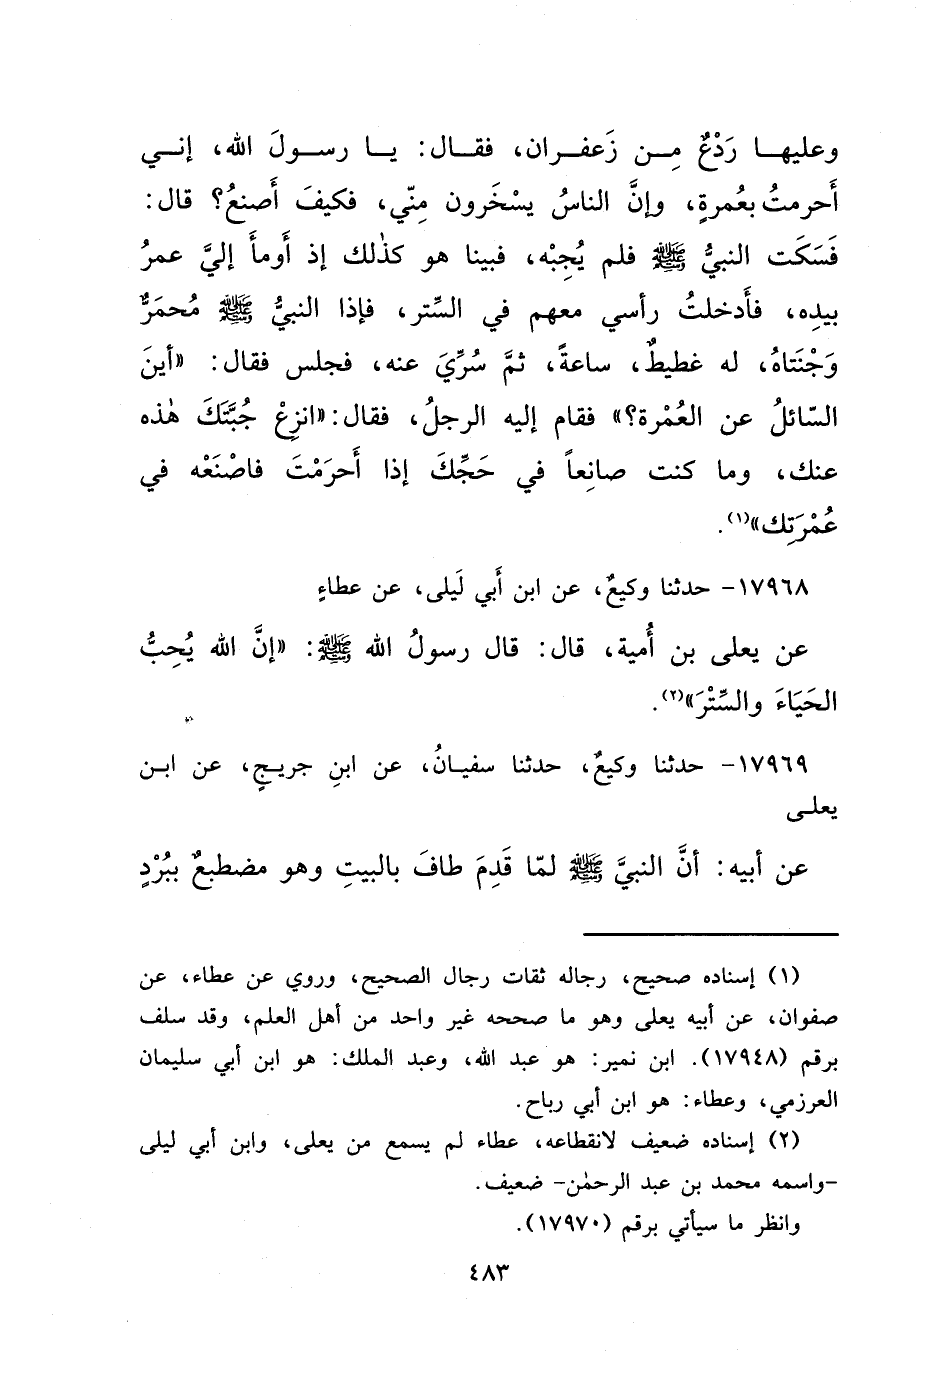 وعليهـا رَدْعٌ مِـن زَعفـران، فقـال: يـا رسـولَ الله، إنـي
أَحرمتُ بعُمرةٍ، وإنَّ الناسُ يسْخَرون مِنّي، فكيفَ أَصنعُ؟ قال:
فَسَكَت النبيُّ ﷺ فلم يُجِبْه، فبينا هو كذٰلك إذ أَومأَ إليَّ عمرُ
بيدِه، فأَدخلتُ رأسي معهم في السِّتر، فإذا النبيُّ ﷺ مُحمَرٌّ
وَجْنَتاهُ، له غطيطٌ، ساعةً، ثمَّ سُرِّيَ عنه، فجلس فقال: «أينَ
السّائلُ عن العُمْرة؟» فقام إليه الرجلُ، فقال: «انزِعْ جُبَّتَكَ هٰذه
عنك، وما كنت صانِعاً في حَجِّكَ إذا أَحرَمْتَ فاصْنَعْه في
عُمْرَتِك»(١).
١٧٩٦٨- حدثنا وكيعٌ، عن ابن أَبي لَيلى، عن عطاءٍ
عن يعلى بن أُمية، قال: قال رسولُ الله ﷺ: «إنَّ الله يُحِبُّ
الحَيَاءَ والسِّتْرَ»(٢).
١٧٩٦٩- حدثنا وكيعٌ، حدثنا سفيـانُ، عن ابنِ جريـجٍ، عن ابـن
يعلـى
عن أبيه: أنَّ النبيَّ ﷺ لمّا قَدِمَ طافَ بالبيتِ وهو مضطبعٌ ببُرْدٍ
(١) إسناده صحيح، رجاله ثقات رجال الصحيح، وروي عن عطاء، عن
صفوان، عن أبيه يعلى وهو ما صححه غير واحد من أهل العلم، وقد سلف
برقم (١٧٩٤٨). ابن نمير: هو عبد الله، وعبد الملك: هو ابن أبي سليمان
العرزمي، وعطاء: هو ابن أبي رباح.
(٢) إسناده ضعيف لانقطاعه، عطاء لم يسمع من يعلى، وابن أبي ليلى
-واسمه محمد بن عبد الرحمٰن- ضعيف.
وانظر ما سيأتي برقم (١٧٩٧٠).
٤٨٣